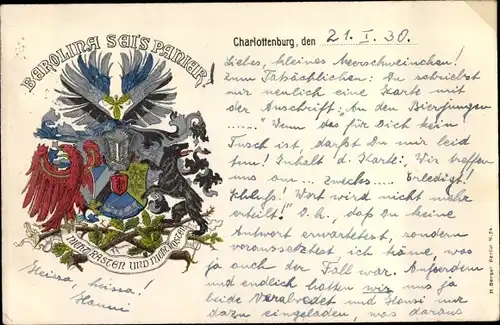 BEROLINA SEI'S PANIER!
Charlottenburg, den 21. I. 30.
Liebes, kleines Meerschweinchen!
Zum Tatsächlichen: Du schriebst
mir neulich eine Karte mit
der Anschrift: „An den Bierjungen
......" Wenn das für Dich kein
Tusch ist, darfst Du mir leid
tun! Inhalt d. Karte: „Wir treffen
uns am ... zwecks .... Erledigt!
Schluß! Wort wird nicht mehr
erteilt!" D.h., daß Du keine
Antwort erwartetest, sondern
voraussetztest ich käme, was
ja auch der Fall war. Außerdem
und endlich hatten wir uns ja
beide verabredet und Hansi nur
dazu eingeladen, was daraus
NICHT RASTEN UND NICHT ROSTEN
Heissa, heissa!
Hanni
H. Berger Berlin N.24.